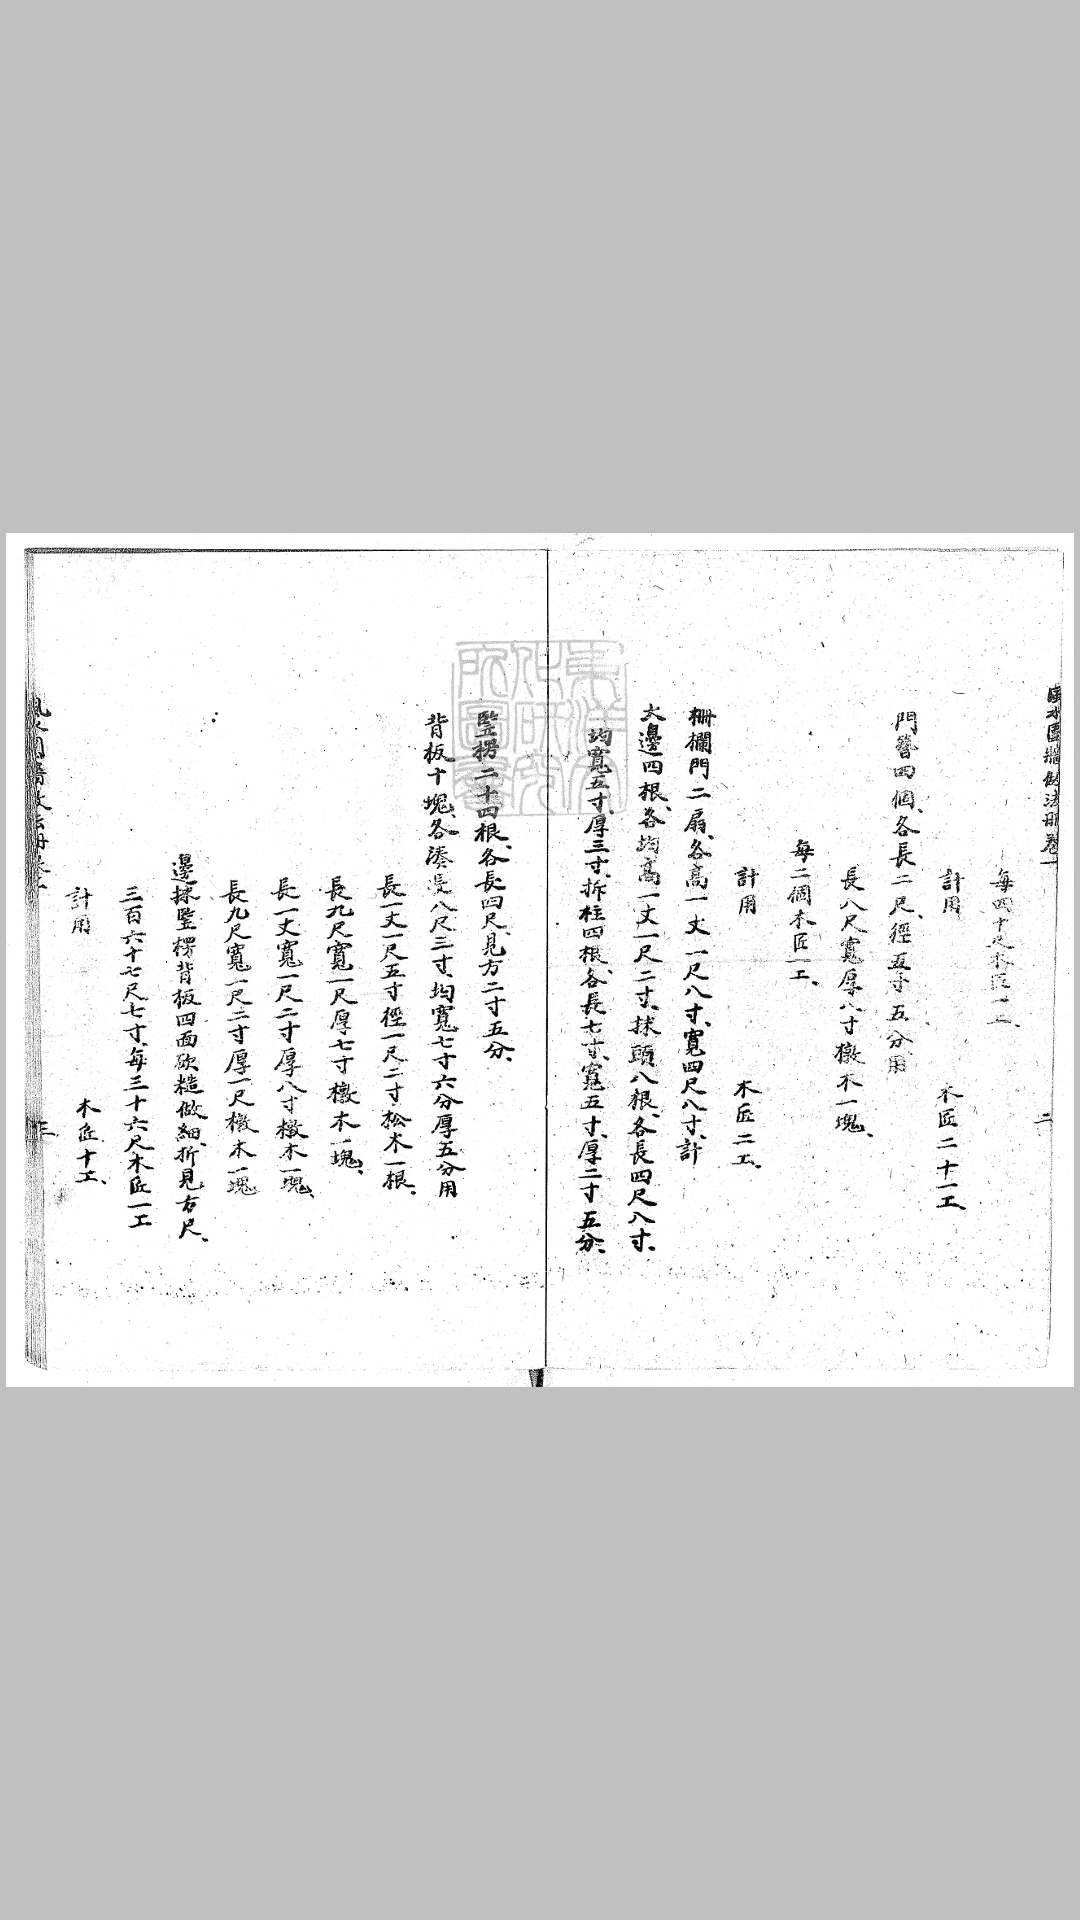 每四十尺木匠一工、
計用
木匠二十一工、
門簪四個、各長二尺、徑五寸五分、用
長八尺寬厚八寸橔木一塊、
每二個木匠一工、
計用
木匠二工、
柵欄門二扇、各高一丈一尺八寸、寬四尺八寸、計
大邊四根、各均高一丈一尺二寸、抹頭八根、各長四尺八寸、
均寬五寸、厚三寸、拆柱四根、各長七寸、寬五寸、厚二寸五分、
豎楞二十四根、各長四尺、見方二寸五分、
背板十塊、各湊長八尺三寸、均寬七寸六分厚五分用
長一丈一尺五寸徑一尺二寸松木一根、
長九尺寬一尺厚七寸橔木一塊、
長一丈寬一尺二寸厚八寸橔木一塊、
長九尺寬一尺二寸厚一尺橔木一塊
邊抹豎楞背板四面砍糙做細、折見方尺、
三百六十七尺七寸、每三十六尺木匠一工
計用
木匠十工、
二
三